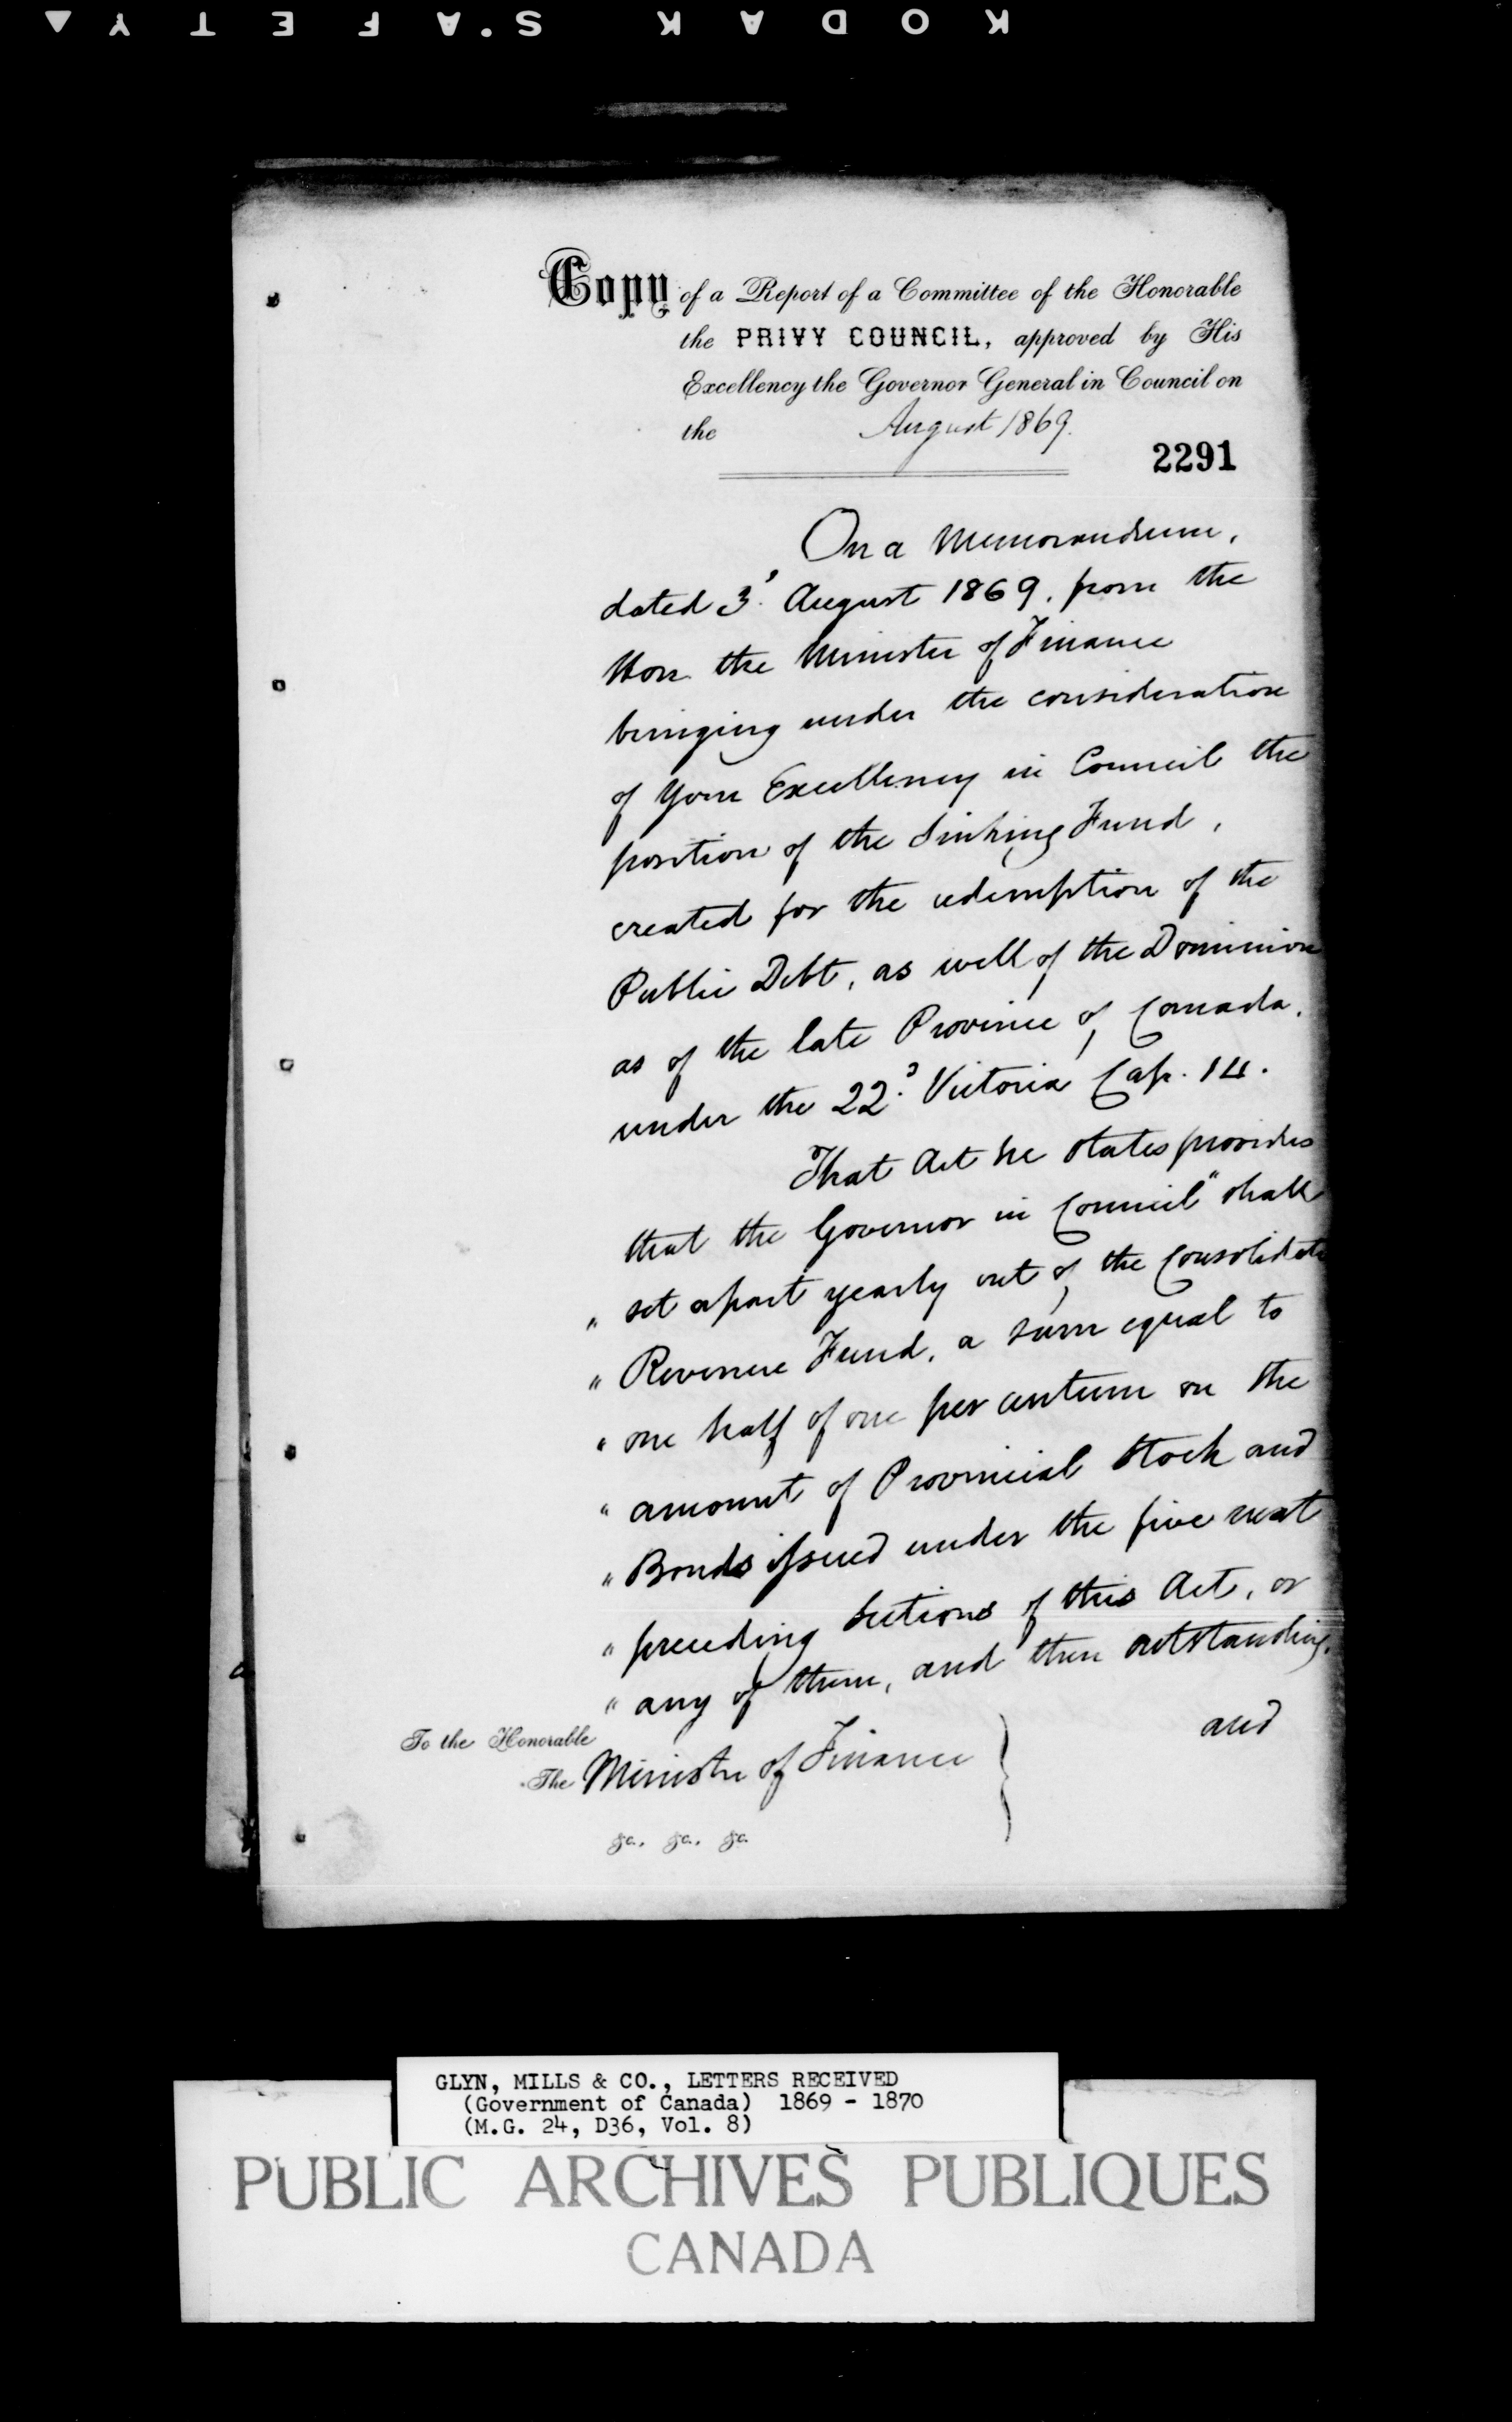 KODAK SAFETY
Copy of a Report of a Committee of the Honorable
the PRIVY COUNCIL, approved by His
Excellency the Governor General in Council on
the August 1869.
2291
On a Memorandum,
dated 3d August 1869, from the
Hon the Minister of Finance
bringing under the consideration
of Your Excellency in Council the
position of the Sinking Fund,
created for the redemption of the
Public Debt, as well of the Dominion
as of the late Province of Canada,
under the 22d Victoria Cap. 14.
That Act he states provides
that the Governor in Council "shall
" set apart yearly out of the Consolidate
" Revenue Fund, a sum equal to
" one half of one per centum on the
" amount of Provincial Stock and
" Bonds issued under the five next
" preceding Sections of this Act, or
" any of them, and then outstanding,
and
To the Honorable
The Minister of Finance
&c., &c., &c.
GLYN, MILLS & CO., LETTERS RECEIVED
(Government of Canada) 1869 - 1870
(M.G. 24, D36, Vol. 8)
PUBLIC ARCHIVES PUBLIQUES
CANADA